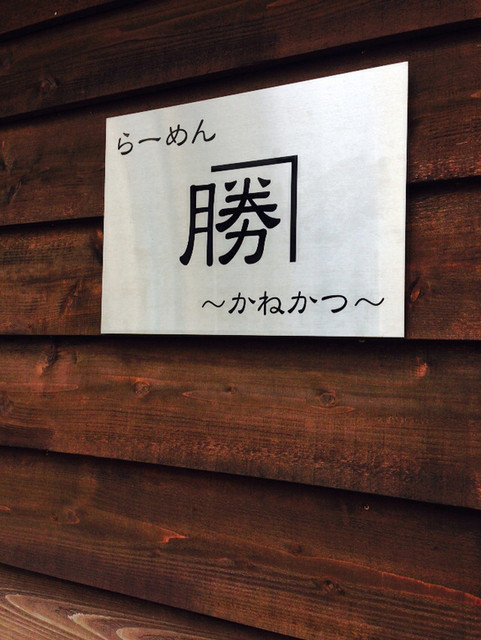 らーめん
勝
～かねかつ～